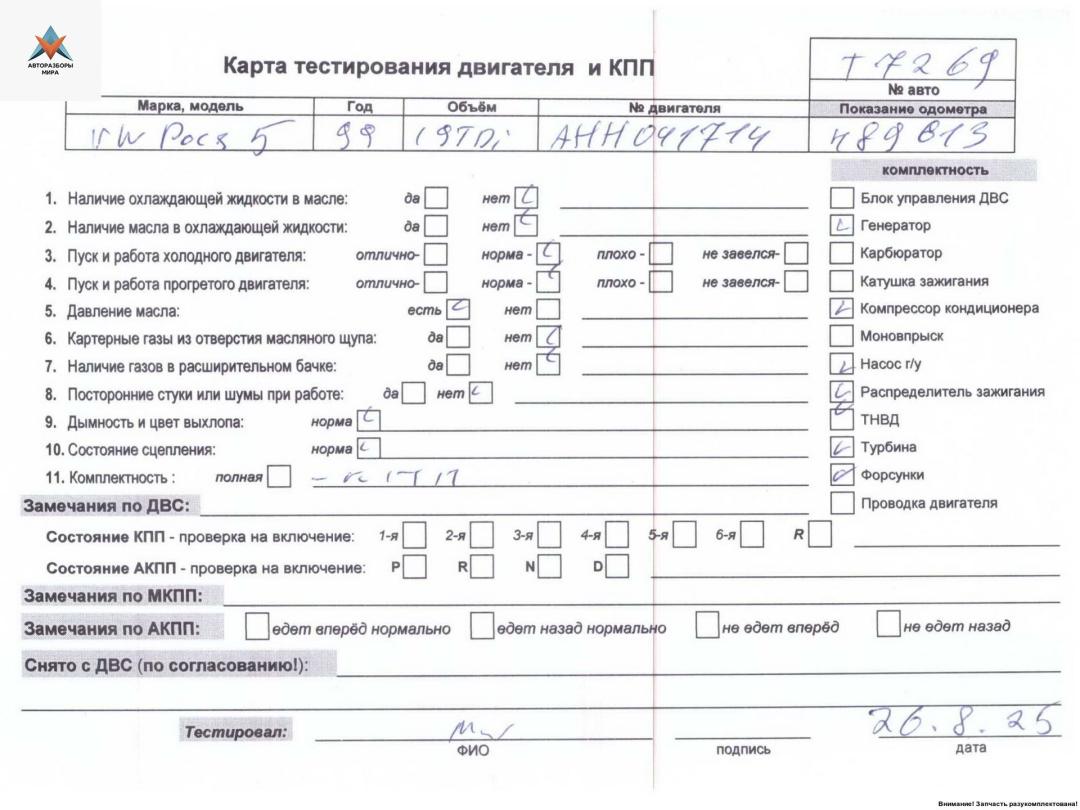 АВТОРАЗБОРЫ
МИРА
Карта тестирования двигателя и КПП
Т7269
№ авто
Марка, модель Год Объём № двигателя Показание одометра
VW 5 99 1,9TDi AHH041714
комплектность
1. Наличие охлаждающей жидкости в масле: да нет
Блок управления ДВС
2. Наличие масла в охлаждающей жидкости: да нет
Генератор
3. Пуск и работа холодного двигателя: отлично- норма - плохо - не завелся-
Карбюратор
4. Пуск и работа прогретого двигателя: отлично- норма - плохо - не завелся-
Катушка зажигания
5. Давление масла: есть нет
Компрессор кондиционера
6. Картерные газы из отверстия масляного щупа: да нет
Моновпрыск
7. Наличие газов в расширительном бачке: да нет
Насос г/у
8. Посторонние стуки или шумы при работе: да нет
Распределитель зажигания
9. Дымность и цвет выхлопа: норма
ТНВД
10. Состояние сцепления: норма
Турбина
11. Комплектность : полная
Форсунки
Замечания по ДВС:
Проводка двигателя
Состояние КПП - проверка на включение: 1-я 2-я 3-я 4-я 5-я 6-я R
Состояние АКПП - проверка на включение: P R N D
Замечания по МКПП:
Замечания по АКПП: едет вперёд нормально едет назад нормально не едет вперёд не едет назад
Снято с ДВС (по согласованию!):
Тестировал:
26.8.25
ФИО подпись дата
Внимание! Запчасть разукомплектована!